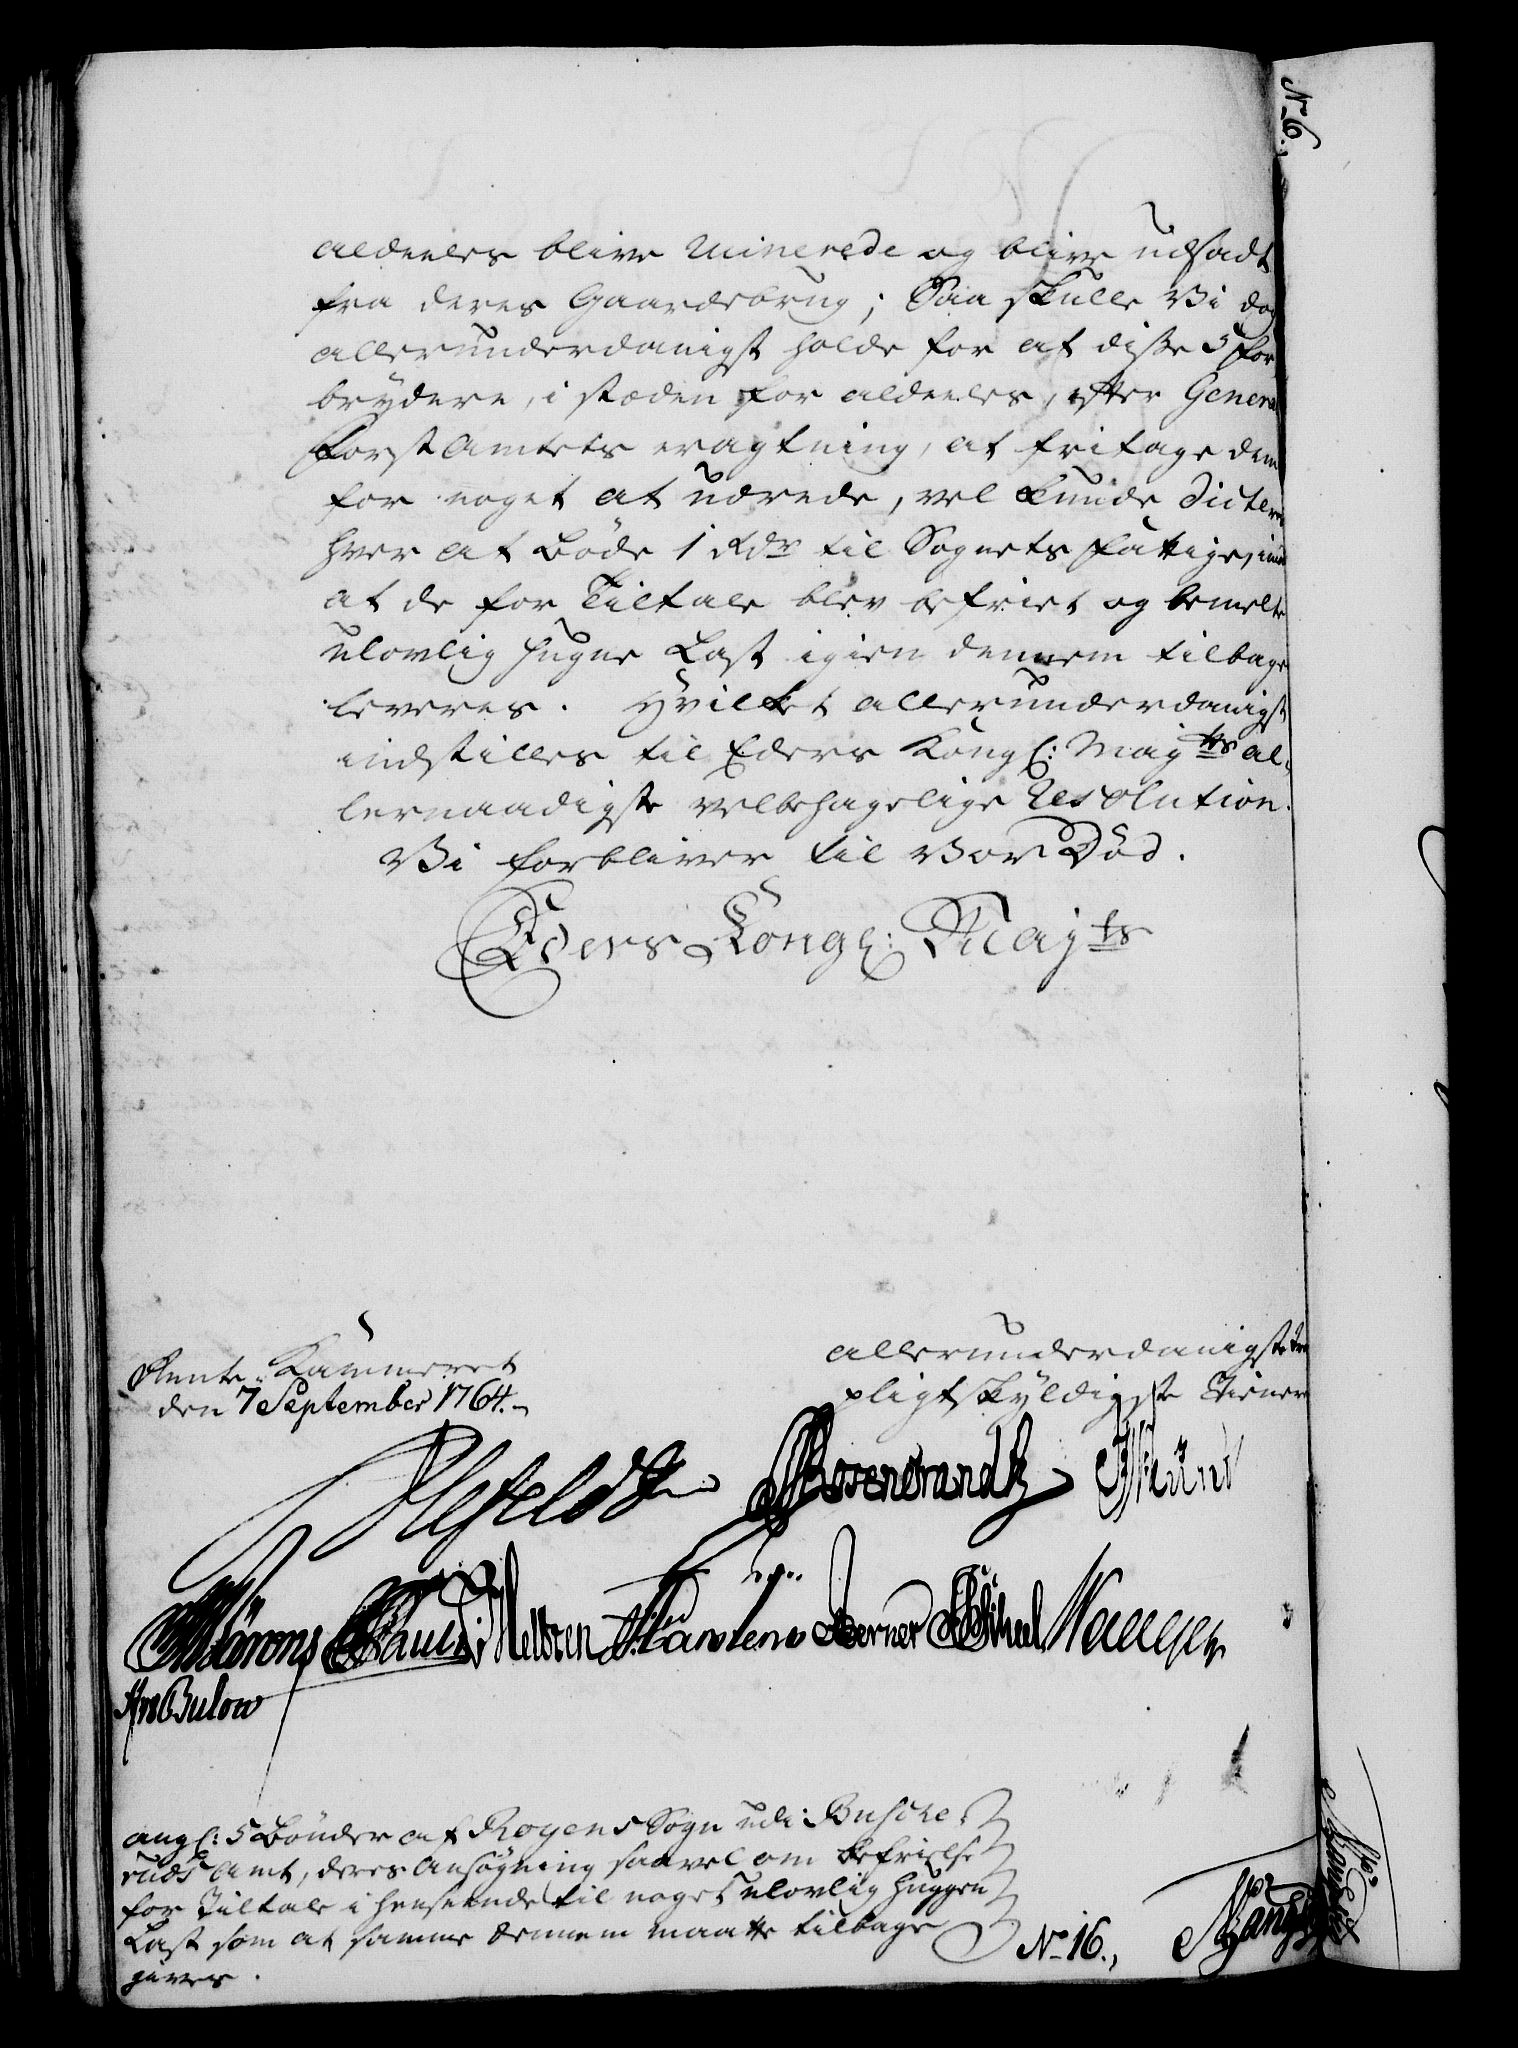 No 6.,
aldeeles blive Ruinerede og blive udsadt
fra deres Gaardebrug; Saa skulle Vi dog
allerunderdanigst holde for at disse 5 for
brydere, i stæden for aldeeles, efter General
Forst Amtets eragtning, at fritage dem
for noget at udrede, vel kunde dictere
hver at bøde 1 Rdr til Sognets Fattige,
at de for Tiltale blev befriet og bemelte
ulovlig hugne Last igien dennem tilbage
leveres. Hvilket allerunderdanigst
indstilles til Eders Kongl: Mayts al-
lernaadigste velbehagelige Resolution.
Vi forbliver til Vor Död.
Eders Kongl: Mayts
Rente-Kammeret
den 7 September 1764.
allerunderdanigste
pligtskyldigste Tienere
Ahlefeldt Rosenkrandtz
Möröns Pauli Heltzen Karstens Berner Scheel
Bulow
angl: 5 Bønder af Rogens Sogn udi Buscke-
ruds Amt, deres Ansøgning saavel om Befrielse
for Tiltale i henseende til noget ulovlig huggen
Last som at samme dennem maatte tilbage
gives.
No 16.,